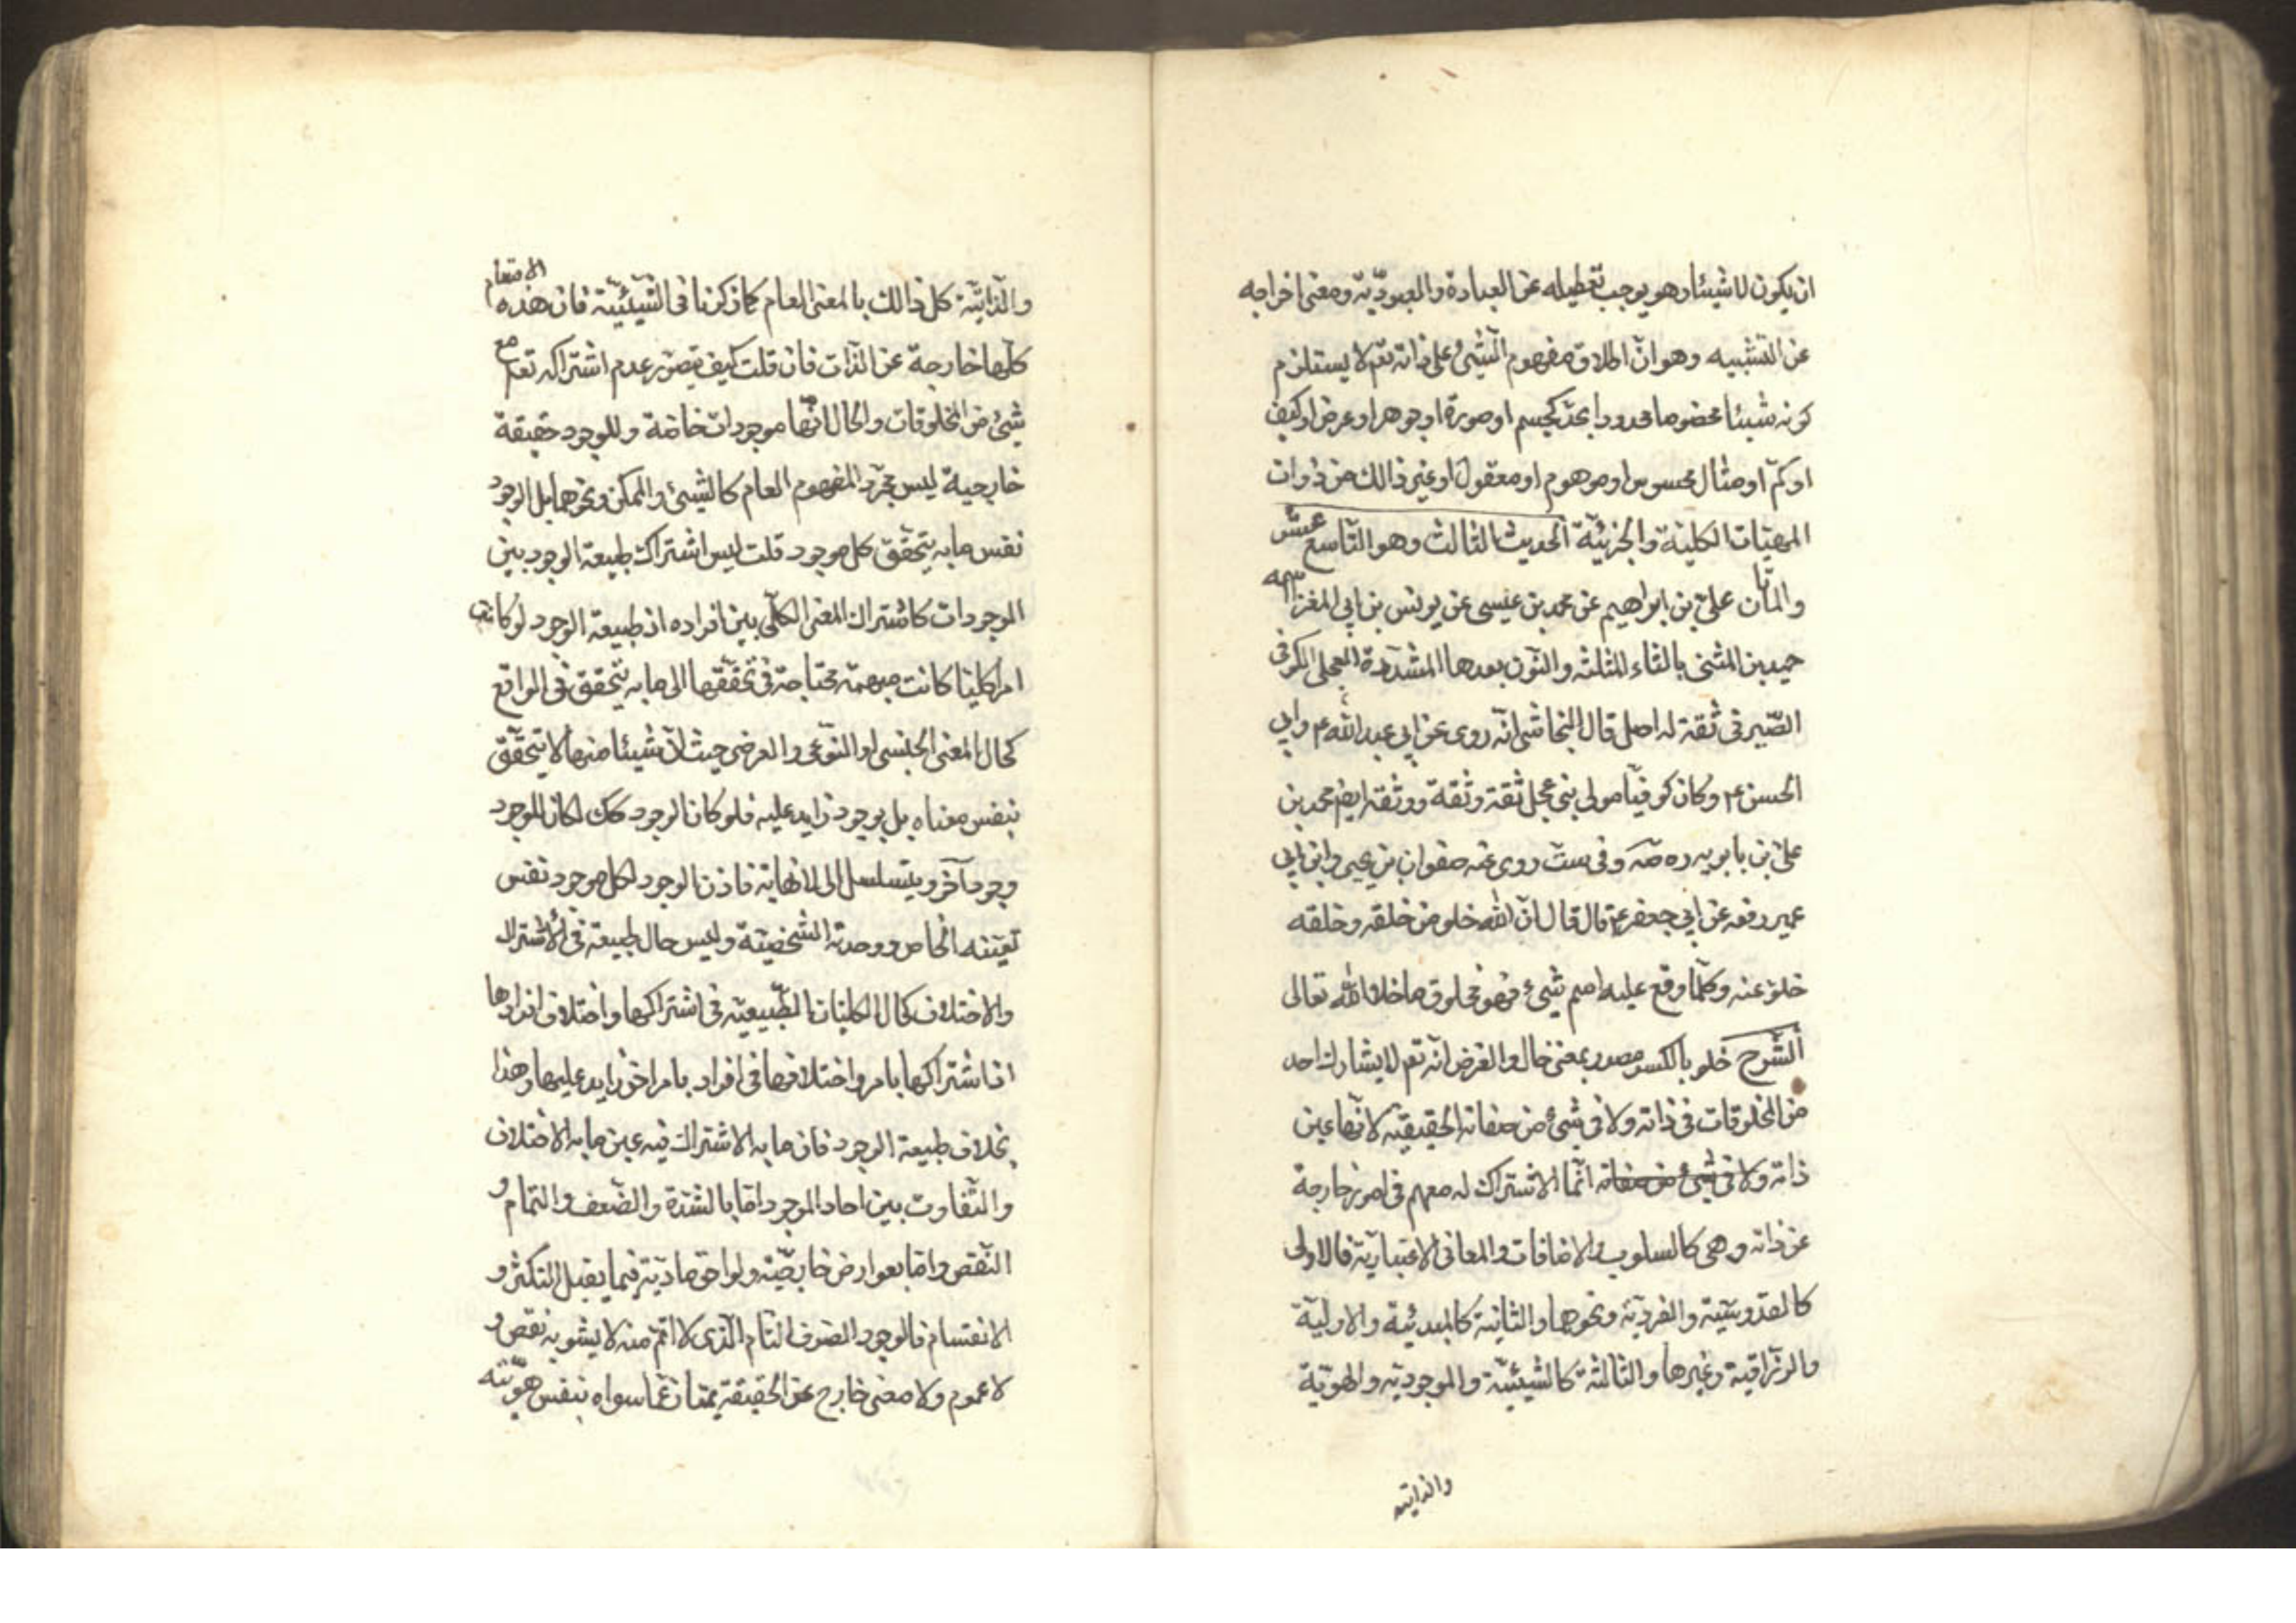 ان يكون لا شيئا وهو يوجب تعطيله عن العبادة والعبوديّة ومعنى اخراجه
عن التشبيه وهو انّ اطلاق مفهوم الشئ على ذاته تعم لا يستلزم
كونه شيئا مخصوصا محدودا بحدّ كجسم او صورة او جوهر او عرض او كيف
او كمّ او مثال محسوس او موهوم او معقول او غير ذالك من ذوات
المهيّات الكلية والجزئيّة الحديث الثالث وهو التاسع عشر
والمأتا ن علىّ بن ابراهيم عن محمد بن عيسى عن يونس بن ابى المغزا اسمه
حميد بن المثنى بالثاء المثلثه والنون بعدها المشدّدة العجلى الكوفى
الصّيرفى ثقة له اصل قال النجاشى انّه روى عن ابى عبد الله ع وابى
الحسن ع وكان كوفيّا مولى بنى عجل ثقة وثقة ووثقه ايضم محمد بن
علىّ بن بابويه ره صه وفى ست روى عنه صفوان بن يحيى وابن ابى
عمير رفعه عن ابى جعفر ع قال قال انّ الله خلو من خلقه وخلقه
خلو عنه وكلّما وقع عليه اسم شئ فهو مخلوق ما خلا الله تعالى
الشّرح خلو بالكسر مصدر بمعنى خال والغرض انّه تعم لا يشارك احد
من المخلوقات فى ذاته ولا فى شئ من صفاته الحقيقيّة لانّها عين
ذاته ولا فى شئ من صفاته انّما الاشتراك له معهم فى امور خارجة
عن ذاته وهى كالسلوب والاضافات والمعانى الاعتباريّة فالاولى
كالقدوسّية والفرديّة ونحوها والثانية كالمبدئيّة والاوليّة
والرزّاقية وغيرها والثالثة كالشيئيّة والموجوديّة والهويّة
والذاتيّه
والذاتيّة كل ذالك بالمعنى العام كما ذكرنا فى الشيئيّة فان هذه الاقسام
كلّها خارجة عن الذّات فان قلت كيف يتصوّر عدم اشتراكه تعم مع
شئ من المخلوقات والحال انّها موجودات خاصّة وللوجود حقيقة
خارجية ليس مجرّد المفهوم العام كالشئ والممكن ونحوهما بل الوجود
نفس ما به يتحقّق كل موجود قلت ليس اشتراك طبيعة الوجود بين
الموجودات كاشتراك المعنى الكلّى بين افراده اذ طبيعة الوجود لو كانت
امرا كليّا كانت مبهمة محتاجة فى تحقّقها الى ما به يتحقق فى الواقع
كحال المعنى الجنسى او النّوعى والعرضى حيث لانّ شيئا منها لا يتحقّق
بنفس معناه بل بوجود زايد عليه فلو كان الوجود كك لكان للوجود
وجود آخر ويتسلسل الى لا نهاية فاذن الوجود لكل موجود نفس
تعيّنه الخاص ووحدته الشخصيّة وليس حال طبيعة فى الاشتراك
والاختلاف كحال الكليات الطّبيعيّه فى اشتراكها واختلاف افرادها
اذ اشتراكها بامر واختلافها فى افراد بامر اخر زايد عليها وهذا
بخلاف طبيعة الوجود فان ما به الاشتراك فيه عين ما به الاختلاف
والتّفاوت بين احاد الموجود امّا بالشدّة والضّعف والتمام و
النّقص وامّا بعوارض خارجيّة ولواحق ماديّة فيما يقبل التكثّر و
الانقسام فالوجود الصّرف التام الّذى لا اتمّ منه لا يشوبه نقص و
لا عموم ولا معنى خارج عن الحقيقة يمتاز عمّا سواه بنفس هويّته